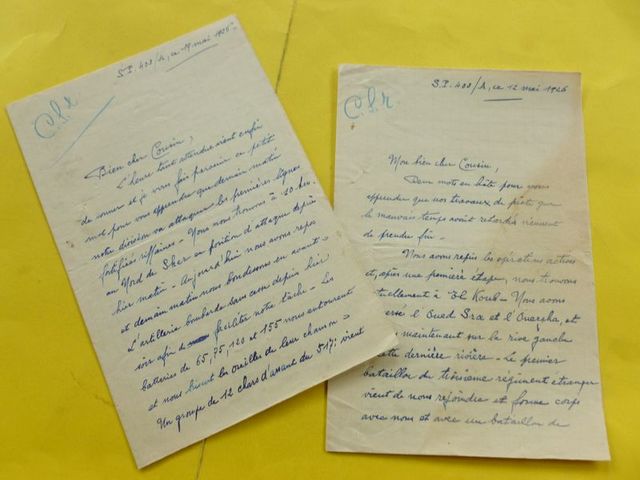 S.P. 408/A, ce 19 mai 1926
C.S.R
Bien cher Cousin,
L'heure tant attendue vient enfin
de sonner et je vous fais parvenir ce petit
mot pour vous apprendre que demain matin
notre division va attaquer les premières lignes
fortifiées riffaines - Nous nous trouvons à 10 km.
au Nord de Sker en position d'attaque depuis
hier matin - Aujourd'hui nous avons repos
et demain matin nous bondissons en avant -
L'artillerie bombarde sans cesse depuis hier
soir afin de faciliter notre tâche - Les
batteries de 65, 75, 120 et 155 nous entourent
et nous bercent les oreilles de leur chanson -
Un groupe de 12 chars d'assaut du 517: vient
S.P. 408/A, ce 12 mai 1926
C.S.R.
Mon bien cher Cousin,
Deux mots en hâte pour vous
apprendre que nos travaux de piste que
le mauvais temps avait retardés viennent
de prendre fin -
Nous avons repris les opérations actives
et, après une première étape, nous trouvons
actuellement à El Koub - Nous avons
l'Oued Sra et l'Ouergha, et
maintenant sur la rive gauche
cette dernière rivière - Le premier
bataillon du troisième régiment étranger
vient de nous rejoindre et forme corps
avec nous et avec un bataillon de